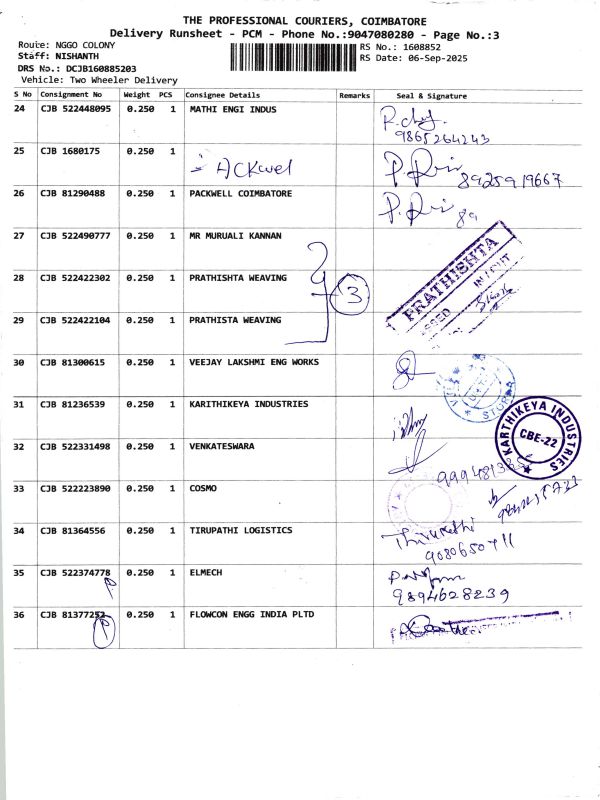 THE PROFESSIONAL COURIERS, COIMBATORE
Delivery Runsheet - PCM - Phone No.:9047080280 - Page No.:3
Route: NGGO COLONY
Staff: NISHANTH
DRS No.: DCJB160885203
Vehicle: Two Wheeler Delivery
RS No.: 1608852
RS Date: 06-Sep-2025
S No Consignment No Weight PCS Consignee Details Remarks Seal & Signature
24 CJB 522448095 0.250 1 MATHI ENGI INDUS
9865264243
25 CJB 1680175 0.250 1 ACKwel
8925919667
26 CJB 81290488 0.250 1 PACKWELL COIMBATORE
89
27 CJB 522490777 0.250 1 MR MURUALI KANNAN
28 CJB 522422302 0.250 1 PRATHISHTA WEAVING
3
PRATHISHTA
IN / OUT
29 CJB 522422104 0.250 1 PRATHISTA WEAVING
30 CJB 81300615 0.250 1 VEEJAY LAKSHMI ENG WORKS
31 CJB 81236539 0.250 1 KARITHIKEYA INDUSTRIES
KARTHIKEYA INDUSTRIES
CBE-22
32 CJB 522331498 0.250 1 VENKATESWARA
33 CJB 522223890 0.250 1 COSMO
34 CJB 81364556 0.250 1 TIRUPATHI LOGISTICS
Thirupathi
9080650711
35 CJB 522374778 0.250 1 ELMECH
9894628239
36 CJB 81377252 0.250 1 FLOWCON ENGG INDIA PLTD